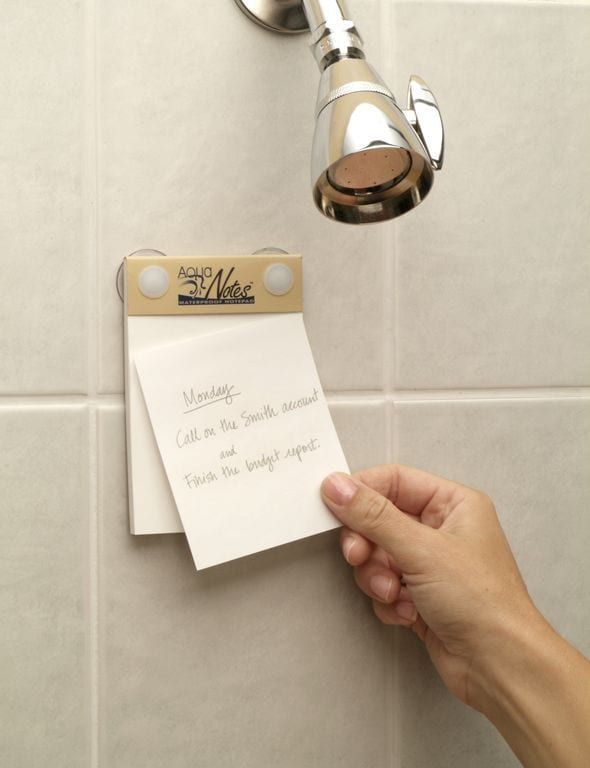 Aqua
Notes™
WATERPROOF NOTEPAD
Monday
Call on the Smith account
and
Finish the budget report.